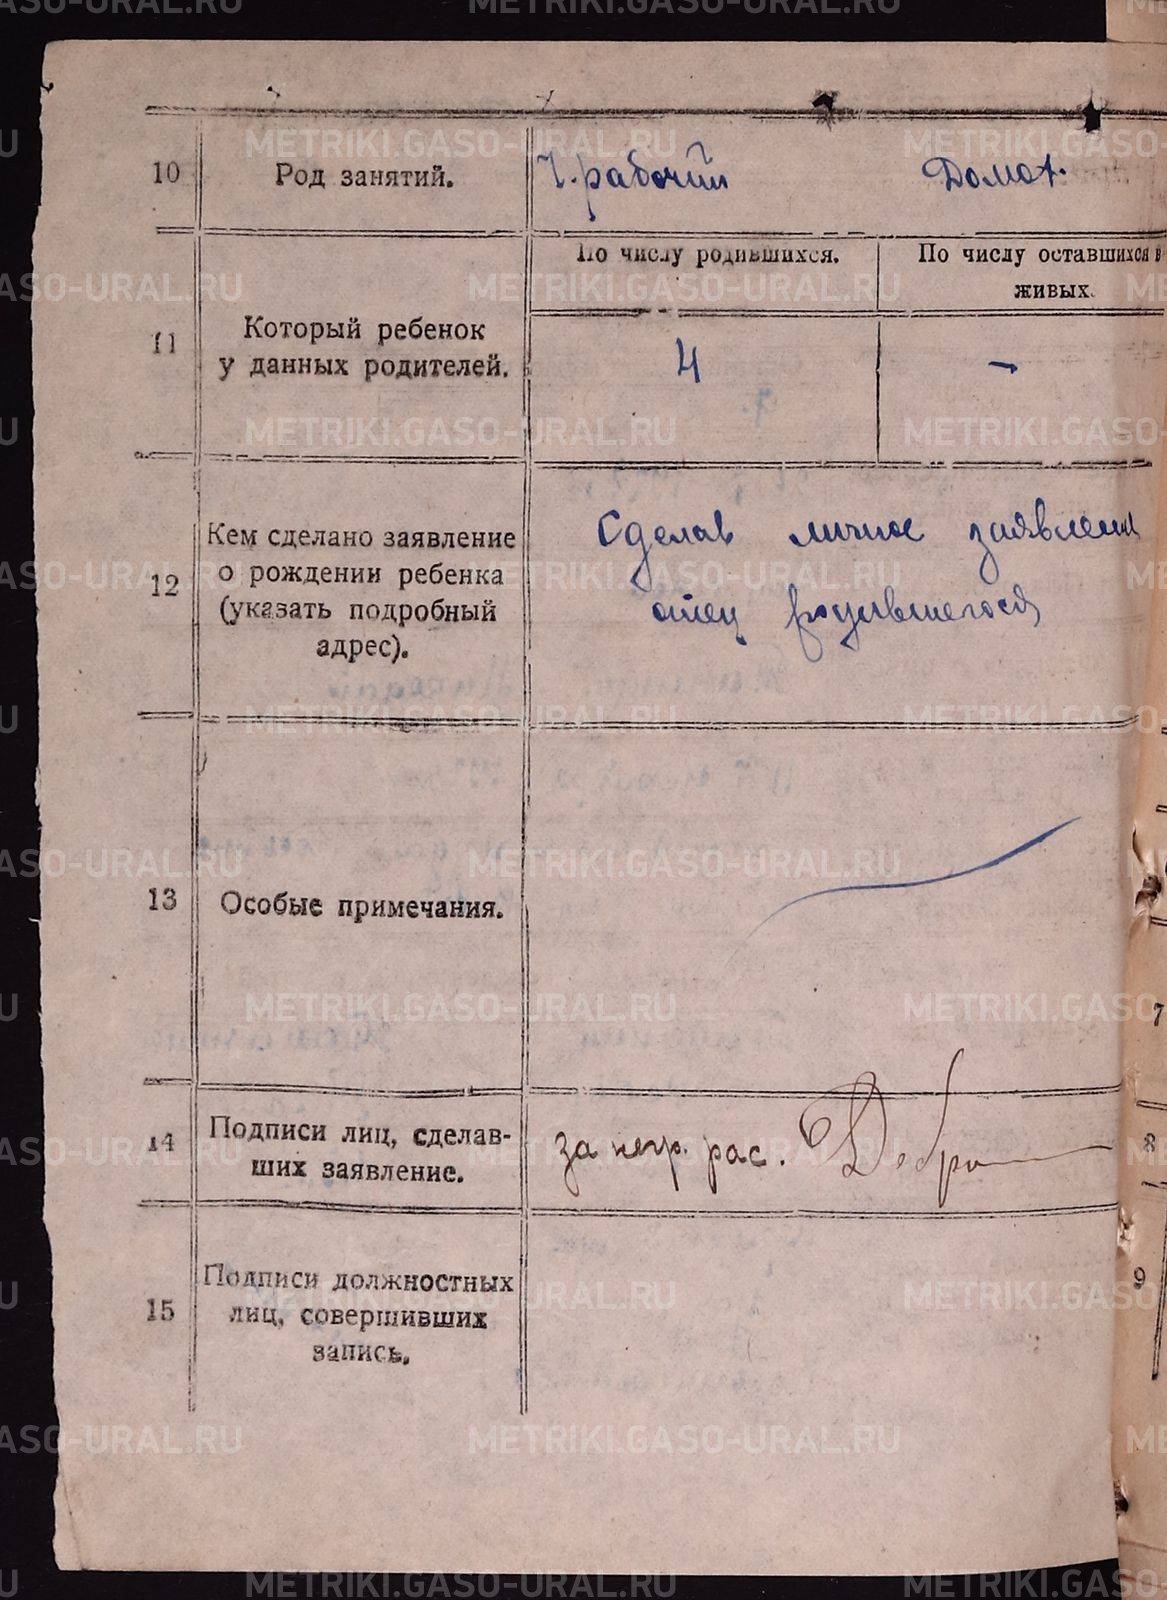 10
Род занятий.
Ч. рабочий
Домох.
По числу родившихся.
По числу оставшихся в
живых.
11
Который ребенок
у данных родителей.
4
—
12
Кем сделано заявление
о рождении ребенка
(указать подробный
адрес).
Сделав личное заявления
отец родившегося
13
Особые примечания.
14
Подписи лиц, сделав-
ших заявление.
за негр. рас.
15
Подписи должностных
лиц, совершивших
запись.
7
8
9
METRIKI.GASO-URAL.RU